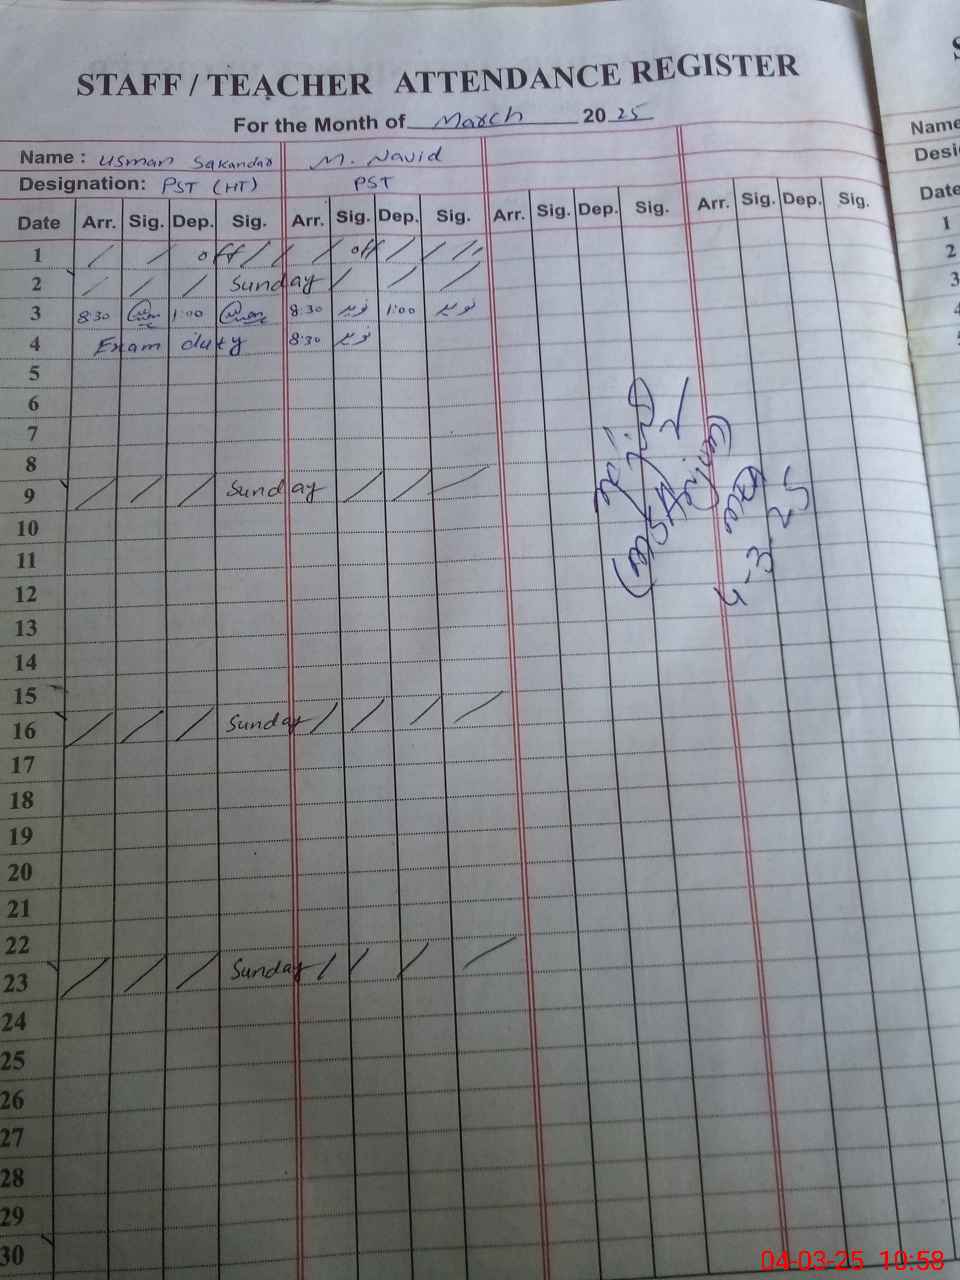 STAFF / TEACHER ATTENDANCE REGISTER
For the Month of March 20 25
Name : Usman Sakandar M. Navid
Designation: PST (HT) PST
Date Arr. Sig. Dep. Sig. Arr. Sig. Dep. Sig. Arr. Sig. Dep. Sig. Arr. Sig. Dep. Sig.
1 off off
2 Sunday
3 8:30 1:00 8:30 1:00
4 Exam duty 8:30
5
6
7
8
9 Sunday
10
11
12
13
14
15
16 Sunday
17
18
19
20
21
22
23 Sunday
24
25
26
27
28
29
30
4-3-25
Name
Desi
Date
1
2
3
04-03-25 10:58